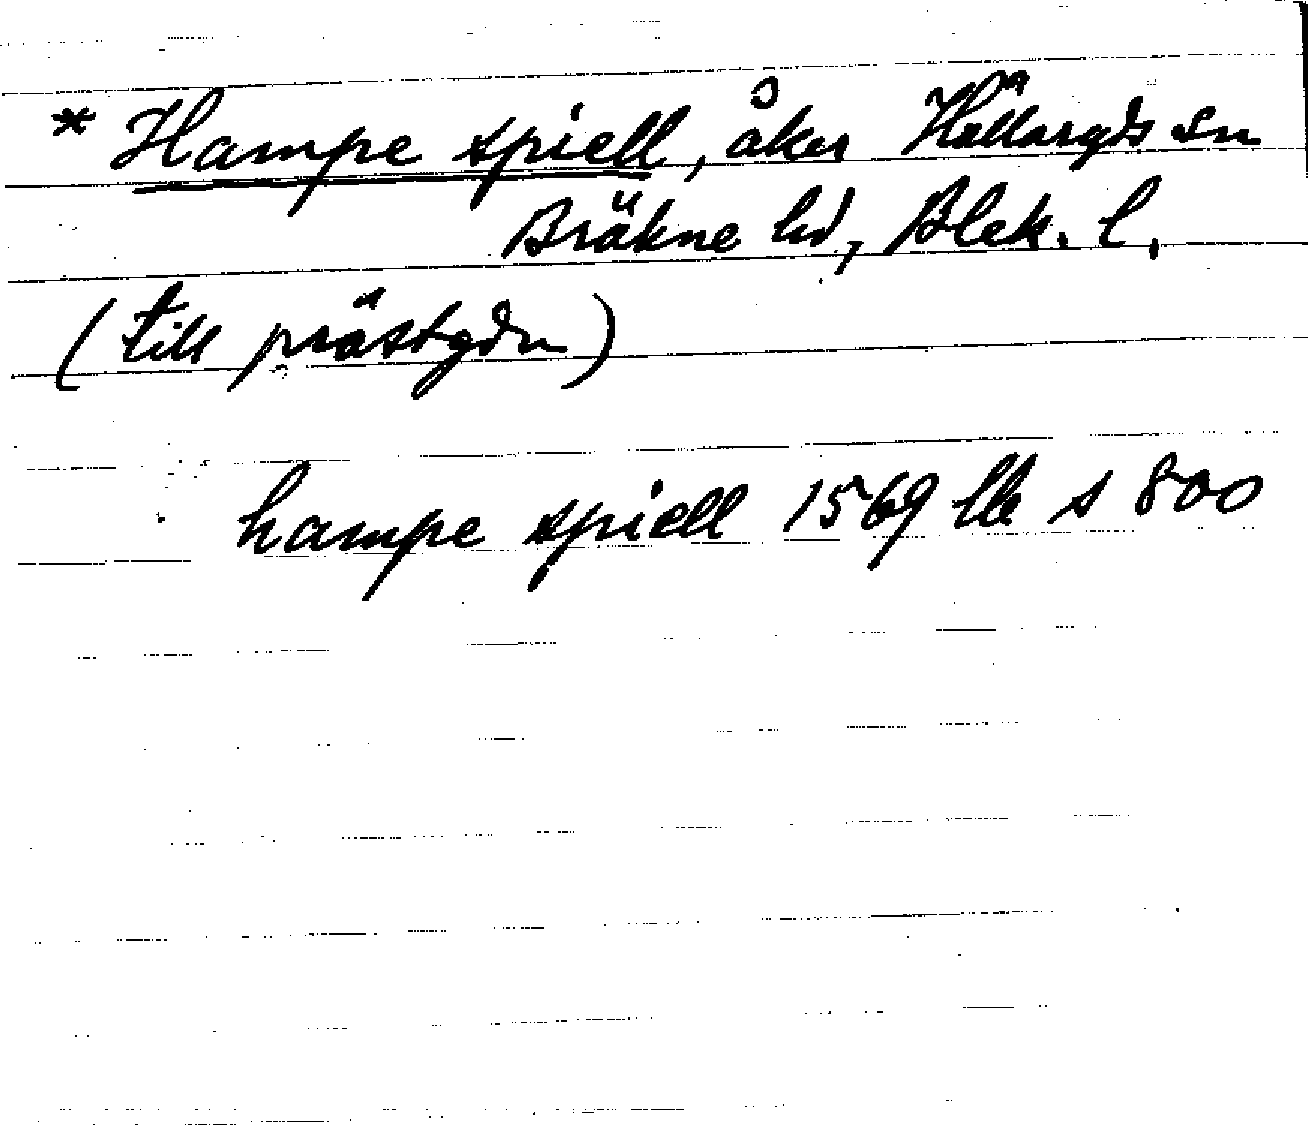 * Hampe spiell, åker Hällaryds sn
Bräkne hd, Blek. l.
(till prästgdn)
hampe spiell 1569 Lb s 800